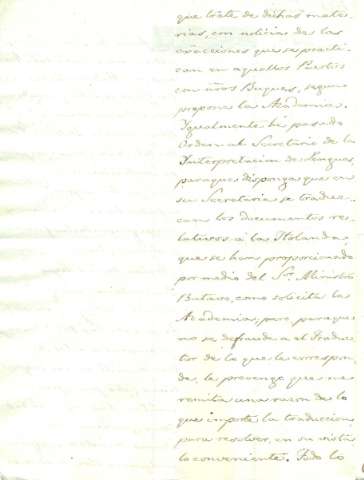 que trate de dichas mate-
rias, con noticia de las
exacciones que se practi-
can en aquellos Puertos
con nros Buques, segun
propone la Academia.
Igualmente hé pasado
Orden al Secretario de la
Interpretacion de Lenguas,
para que disponga que en
su Secretaria se traduz-
can los documentos re-
lativos á la Holanda,
que se han proporcionado
por medio del Sor. Ministro
Batavo, como solicita la
Academia; pero para que
no se defraude al Traduc-
tor de lo que le correspon-
de, le prevengo que me
remita una razon de lo
que importe la traduccion
para resolver, en su vista
lo conveniente. Todo lo